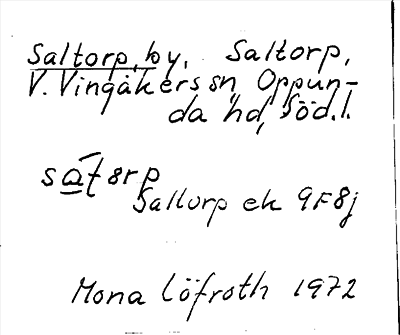 Saltorp, by, Saltorp,
V. Vingåkers sn, Oppun-
da hd, Söd.l.
Saltorp ek 9F8j
Mona Löfroth 1972